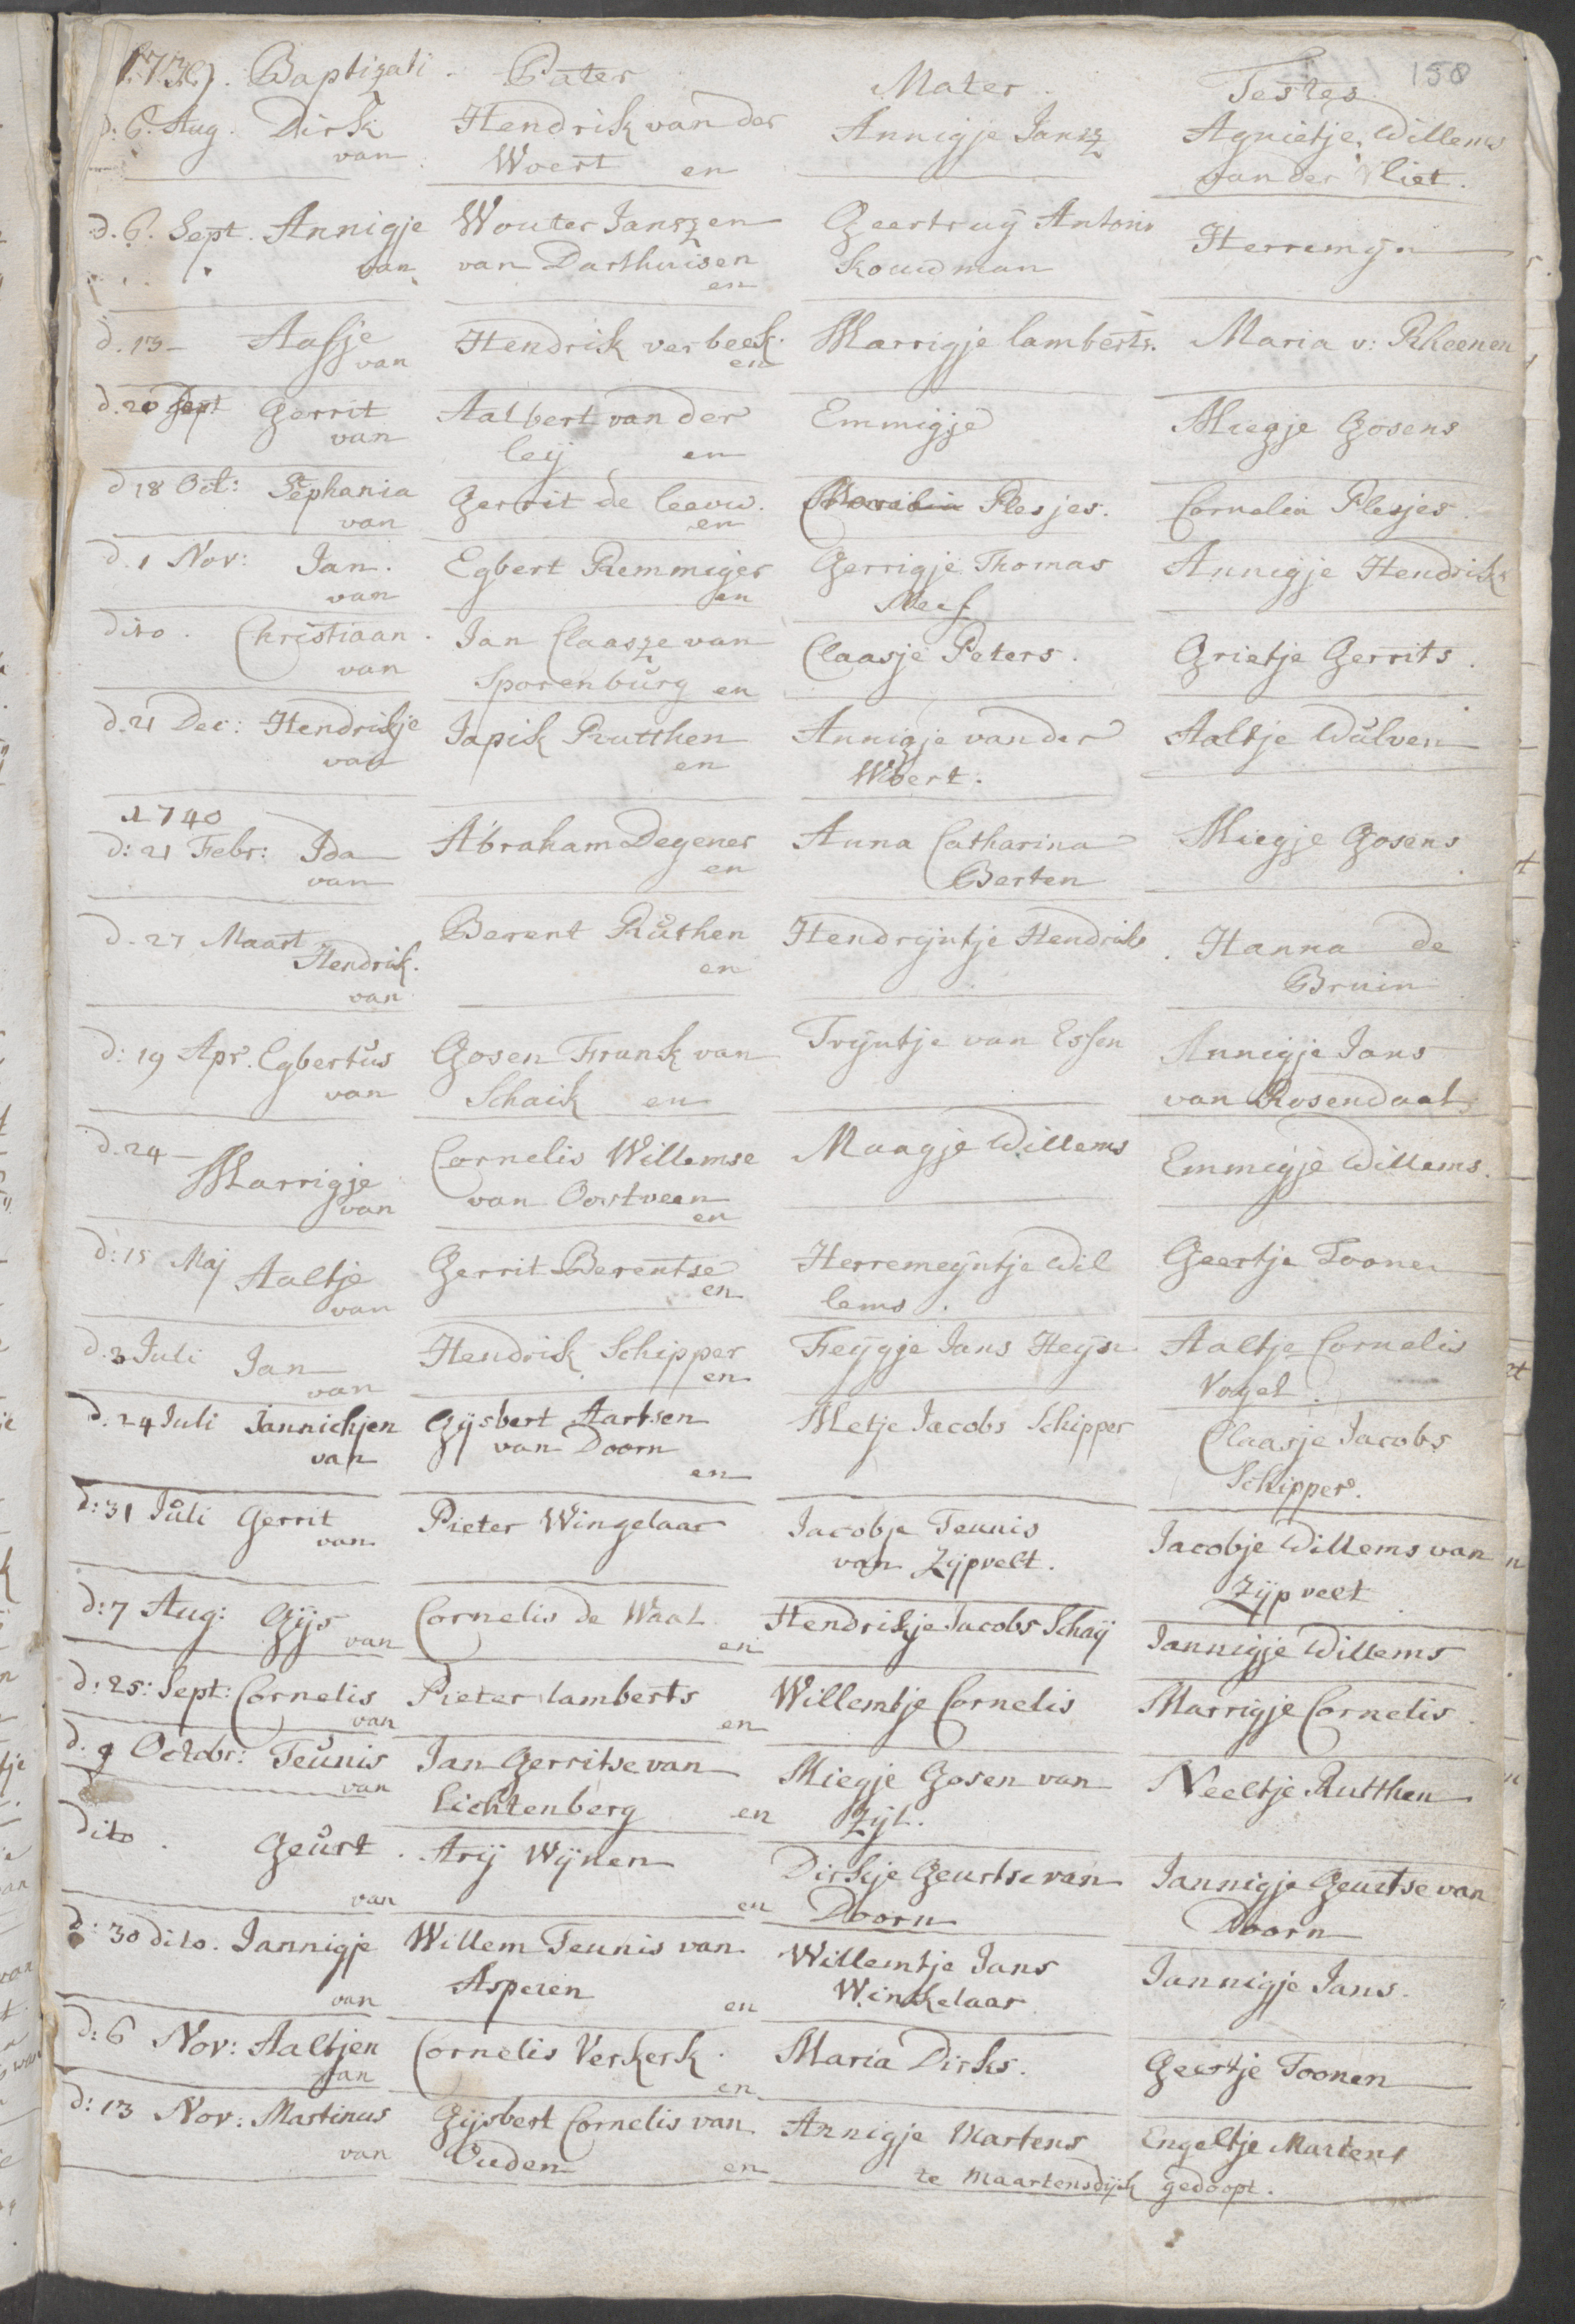 1739. Baptizati. Pater Mater. Testes 158
d. 6. Aug. Dirk Hendrik van der Annigje Jansz Agnietje Willems
van Woert en van der Vliet.
d. 6. Sept. Annigje Wouter Janszen Geertruÿ Antonis Herremÿn
van van Darthuisen en Koudman
d. 13 - Aafje Hendrik verbeek. Marrigje lamberts. Maria v: Rheenen
van en
d. 20 Sept Gerrit Aalbert van der Emmigje Miegje Gosens
van leÿ en
d 18 Oct: Stephania Gerrit de leeuw. Plesjes. Cornelia Plesjes.
van en
d. 1 Nov: Jan. Egbert Remmiger Gerrigje Thomas Annigje Hendriks
van en Neef
dito. Christiaan. Jan Claasze van Claasje Peters. Grietje Gerrits.
van Sporenburg en
d. 21 Dec: Hendrikje Japik Rutthen Annigje van der Aaltje Wulven
van en Woert.
1740
d: 21 Febr: Ida Abraham Degener Anna Catharina Miegje Gosens
van en Berten
d. 27 Maart Berent Ruthen Hendrijntje Hendriks. Hanna de
Hendrik. van en Bruin
d: 19 Apr. Egbertus Gosen Frank van Trÿntje van Essen Annigje Jans
van Schaik en van Rosendaal
d. 24 - Cornelis Willemse Maagje Willems Emmigje Willems.
Marrigje van van Oostveen en
d: 15 Maj Aaltje Gerrit Berentse Herremeÿntje Wil Geertje Toonen
van en lems.
d. 3 Juli Jan Hendrik Schipper Feÿgje Jans Heÿn Aaltje Cornelis
van en Vogel.
d. 24 Juli Jannichjen Gijsbert Aartsen Metje Jacobs Schipper Claasje Jacobs
van van Doorn en Schipper.
d: 31 Juli Gerrit Pieter Wingelaar Jacobje Teunis Jacobje Willems van
van van Zijpvelt. Zijpvelt
d: 7 Aug: Gijs Cornelis de Waal Hendrikje Jacobs Schaÿ Jannigje Willems
van en
d: 25: Sept: Cornelis Pieter lamberts Willemtje Cornelis Marrigje Cornelis.
van en
d. 9 Octobr: Teunis Jan Gerritse van Miegje Gosen van Neeltje Rutthen
van Lichtenberg en Zijl.
dito. Geurt. Arij Wijnen Dirkje Geurtse van Jannigje Geurtse van
van en Doorn Doorn
d: 30 dito. Jannigje Willem Teunis van Willemtje Jans Jannigje Jans.
van Asperen en Winkelaar
d: 6 Nov: Aaltjen Cornelis Verkerk. Maria Dirks. Geertje Toonen
van en
d: 13 Nov: Martinus Gijsbert Cornelis van Annigje Martens Engeltje Martens
van Ouden en te Maartensdijk gedoopt.